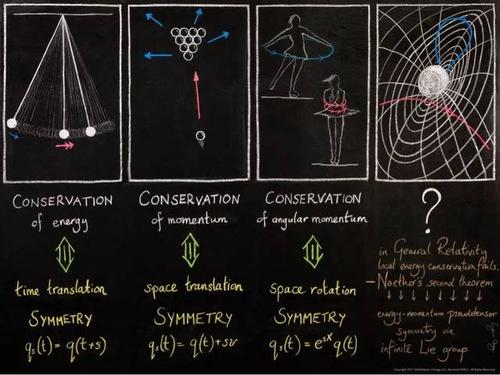 CONSERVATION
of energy
time translation
SYMMETRY
qₛ(t) = q(t+s)
CONSERVATION
of momentum
space translation
SYMMETRY
qₛ(t) = q(t)+sv
CONSERVATION
of angular momentum
space rotation
SYMMETRY
qₛ(t) = eˢˣ q(t)
?
in General Relativity
local energy conservation fails.
– Noether's second theorem
energy-momentum pseudotensor
symmetry via
infinite Lie group